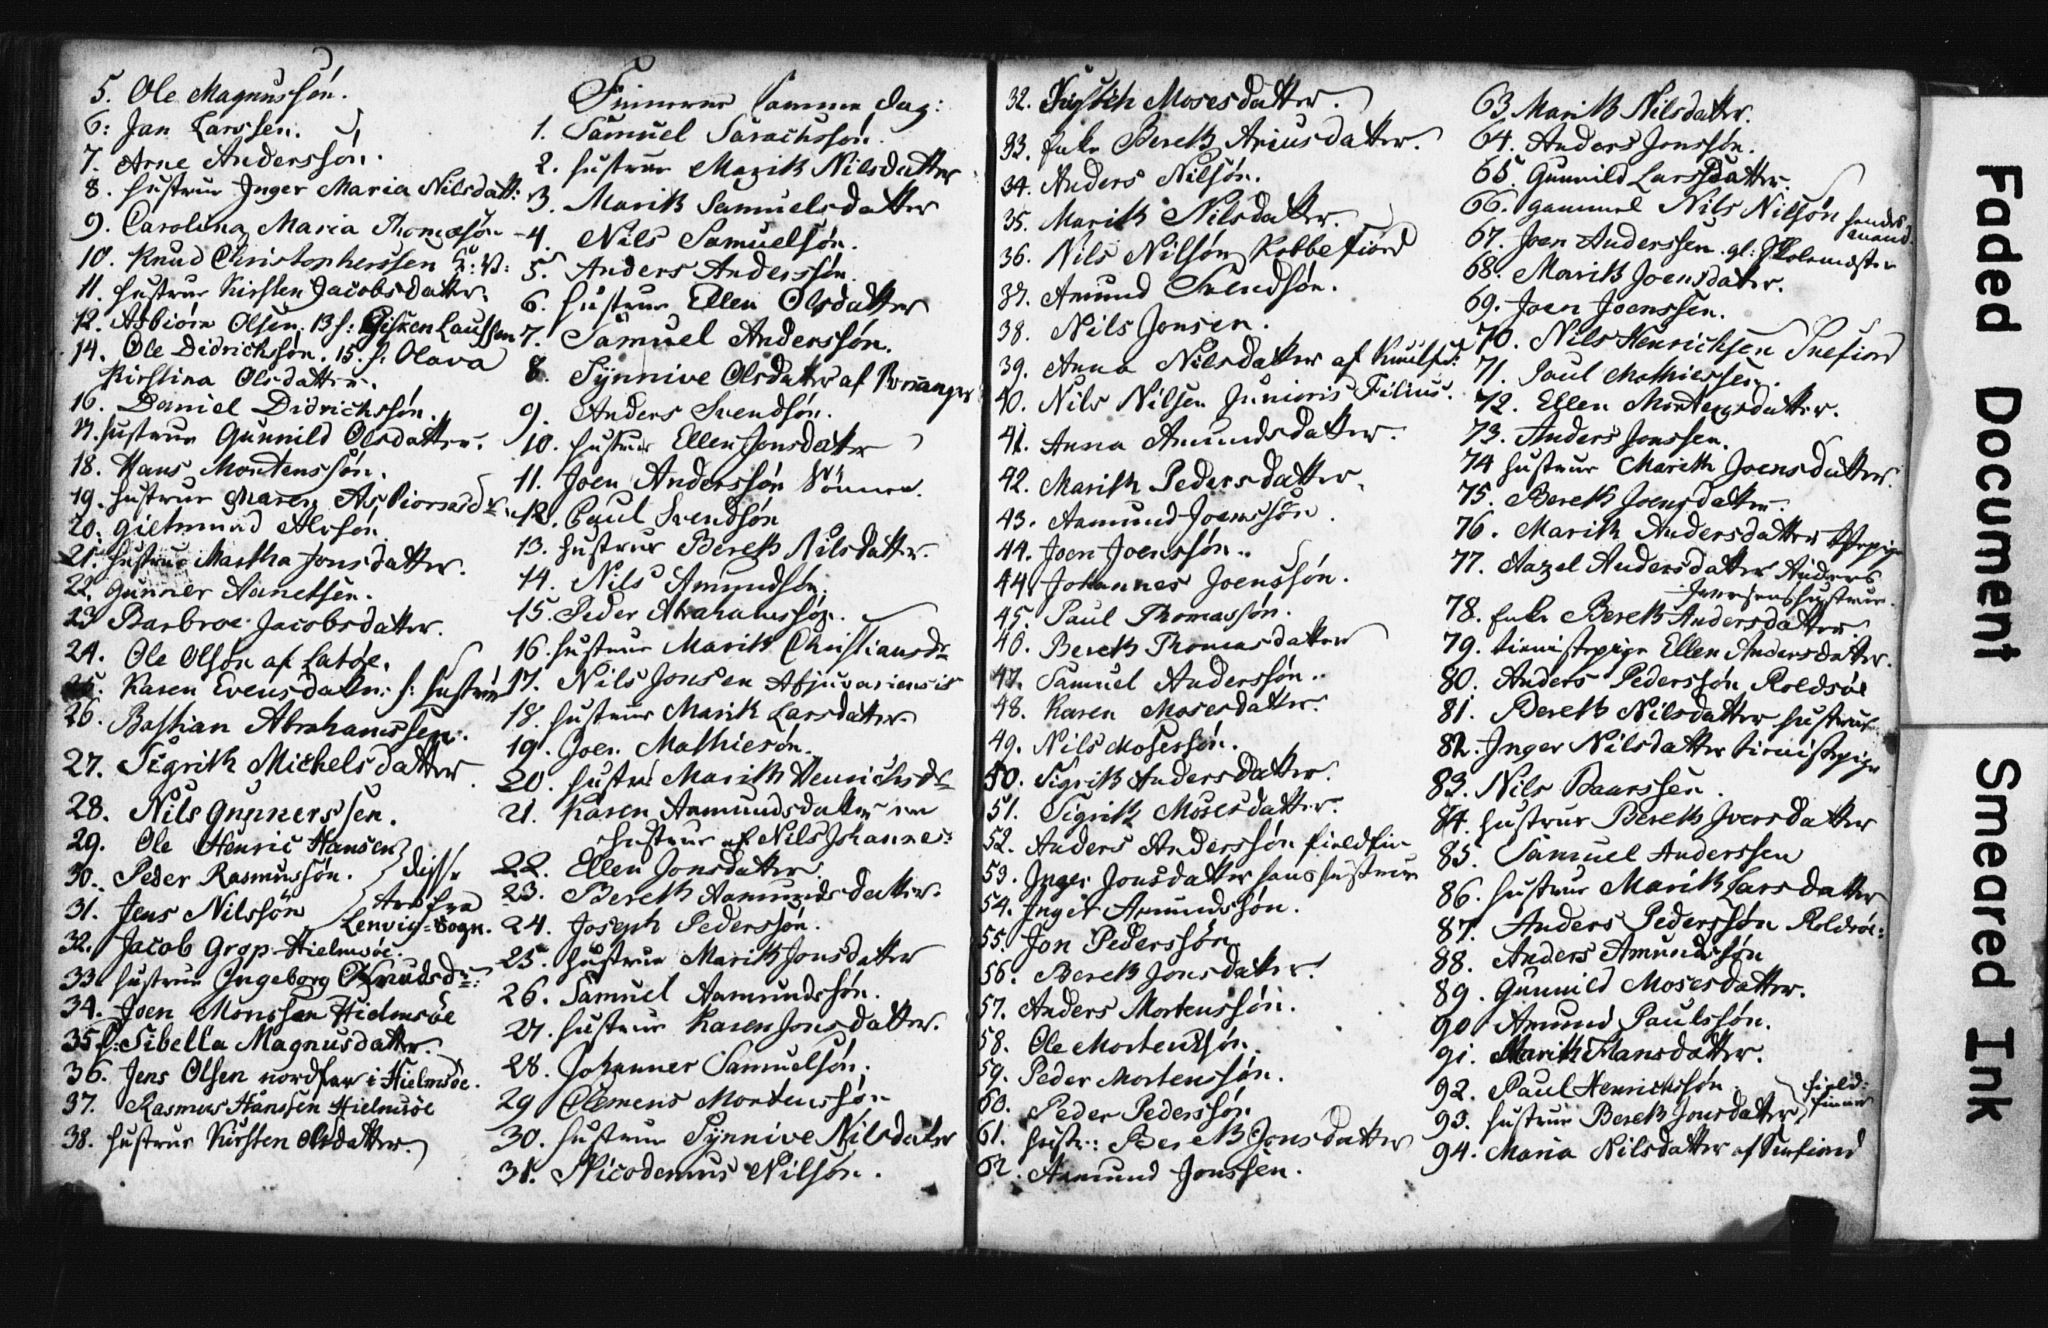 5. Ole Magnussøn.
6: Jan Larssen.
7. Arne Anderssøn.
8. hustrue Inger Maria Nilsdatt:
9. Carolina Maria Thomæsøn
10. Knud Christopherssen
11. hustrue Kirsten Jacobsdatter.
12. Asbiörn Olsen. 13 h: Gisken Laussen
14. Ole Didrichssøn. 15. h: Olava
Kirstina Olsdatter.
16. Daniel Didrichssøn.
17. hustrue Gunnild Olsdatter.
18. Hans Mortenssøn.
19. hustrue Maren Asbiornsdr.
20. Gietmund Alvsøn
21. hustrue Martha Jonsdatter.
22. Gunner Aanetsen.
23 Barbroe Jacobsdatter.
24. Ole Olsøn af Latøe.
25. Karen Evensdatter: h: hustrue
26. Bastian Abrahamssen.
27. Sigrith Michelsdatter
28. Nils Gunnerssen.
29. Ole Henric Hansen
30. Peder Rasmussøn. disse
31. Jens Nilssøn tre fra
Lenvig-Sogn.
32. Jacob Grop Hielmsöe.
33 hustrue Ingeborg Knudsdr:
34. Joen Monssen Hielmsöe
35 h: Sibella Magnusdatter.
36. Jens Olsen nordfar i Hielmsöe.
37. Rasmus Hanssen Hielmsöe
38. hustrue Kirsten Olsdatter.
Finnerne samme dag:
1. Samuel Sarachssøn.
2. hustrue Marith Nilsdatter
3. Marith Samuelsdatter
4. Nils Samuelsøn.
5. Anders Anderssøn.
6. hustrue Ellen Olsdatter
7. Samuel Anderssøn.
8. Synnive Olsdatter af Porsanger
9. Anders Svendsøn.
10. hustrue Ellen Jonsdatter
11. Joen Anderssøn Sönnen.
12. Poul Svendsøn
13. hustrue Bereth Nilsdatter.
14. Nils Amundsøn.
15. Peder Abrahamssøn.
16. hustrue Marith Christiansdr
17. Nils Jonsen Afjuvariensis
18. hustrue Marith Larsdatter.
19. Joen Mathiesøn.
20. hustru Marith Henrichsdr
21. Karen Aamundsdatter en
hustrue af Nils Johannes:
22. Ellen Jonsdatter.
23. Bereth Aamundsdatter.
24. Joseph Pederssøn.
25. hustrue Marith Jonsdatter
26. Samuel Aamundssøn.
27. hustrue Karen Jonsdatter.
28. Johannes Samuelsøn.
29 Clemens Mortenssøn
30. hustrue Synnive Nilsdatter
31. Nicodemus Nilsøn.
32. Sigrith Mosesdatter.
33. Enke Bereth Ariusdatter.
34. Anders Nilsøn.
35. Marith Nilsdatter.
36. Nils Nilsøn Kobbefiord
37. Amund Svendsøn.
38. Nils Jonsen.
39. Anna Nilsdatter af
40. Nils Nilsen Junioris Filius.
41. Anna Amundsdatter.
42. Marith Pedersdatter.
43. Aamund Joenssøn.
44. Joen Joenssøn.
44 Johannes Joenssøn.
45. Paul Thomassøn.
46. Bereth Thomasdatter
47. Samuel Anderssøn.
48. Karen Mosesdatter
49. Nils Mosessøn.
50. Sigrith Andersdatter.
51. Sigrith Mosesdatter.
52. Anders Anderssøn fieldfin
53. Inger Jonsdatter hans hustrue
54. Inger Amundsøn.
55. Jon Pederssøn
56. Bereth Jonsdatter.
57. Anders Mortenssøn.
58. Ole Mortenssøn.
59. Peder Mortenssøn.
60. Peder Pederssøn
61. hustr:: Bereth Jonsdatter
62. Aamund Jonssen.
63 Marith Nilsdatter.
64. Anders Jonssøn.
65. Gunnild Larsdatter.
66. gammel Nils Nilsøn
67. Joen Anderssen. gl: Skolemester
68. Marith Joensdatter.
69. Joen Joenssen.
70. Nils Henrichsen Snefiord
71. Paul Mathiessen.
72. Ellen Mortensdatter.
73. Anders Jonssen.
74 hustrue Marith Joensdatter.
75. Bereth Joensdatter.
76. Marith Andersdatter
77. Aazel Andersdatter Anders
Iversens hustrue.
78. Enke Bereth Andersdatter
79. tienistepige Ellen Andersdatter.
80. Anders Pederssøn Roldsöe
81. Bereth Nilsdatter hustrue.
82. Inger Nilsdatter tienistepige
83. Nils Baarssen.
84. hustrue Bereth Iversdatter
85. Samuel Anderssen
86. hustrue Marith Larsdatter
87. Anders Pederssøn Roldsöe:
88. Anders Amundsøn
89. Gunnild Mosesdatter.
90. Amund Paulssøn.
91. Marith Hansdatter.
92. Paul Henrichssøn field:
93. hustrue Bereth Jonsdatter finner
94. Maria Nilsdatter af Snefiord
Faded Document
Smeared Ink